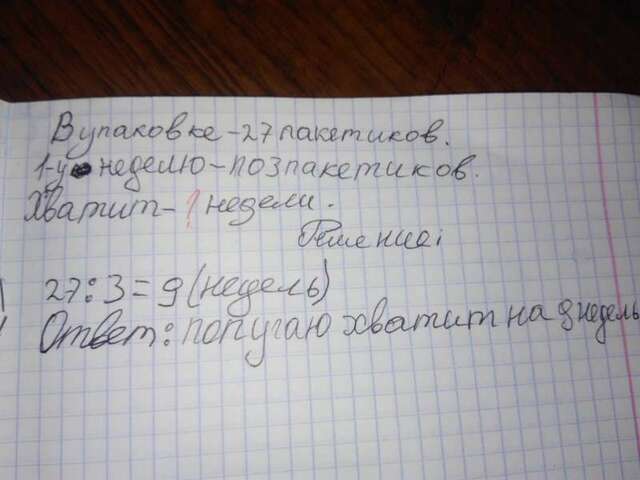 В упаковке - 27 пакетиков.
1-ую неделю - по 3 пакетиков.
Хватит - ? недели.
Решение:
27 : 3 = 9 (недель)
Ответ: попугаю хватит на 9 недель